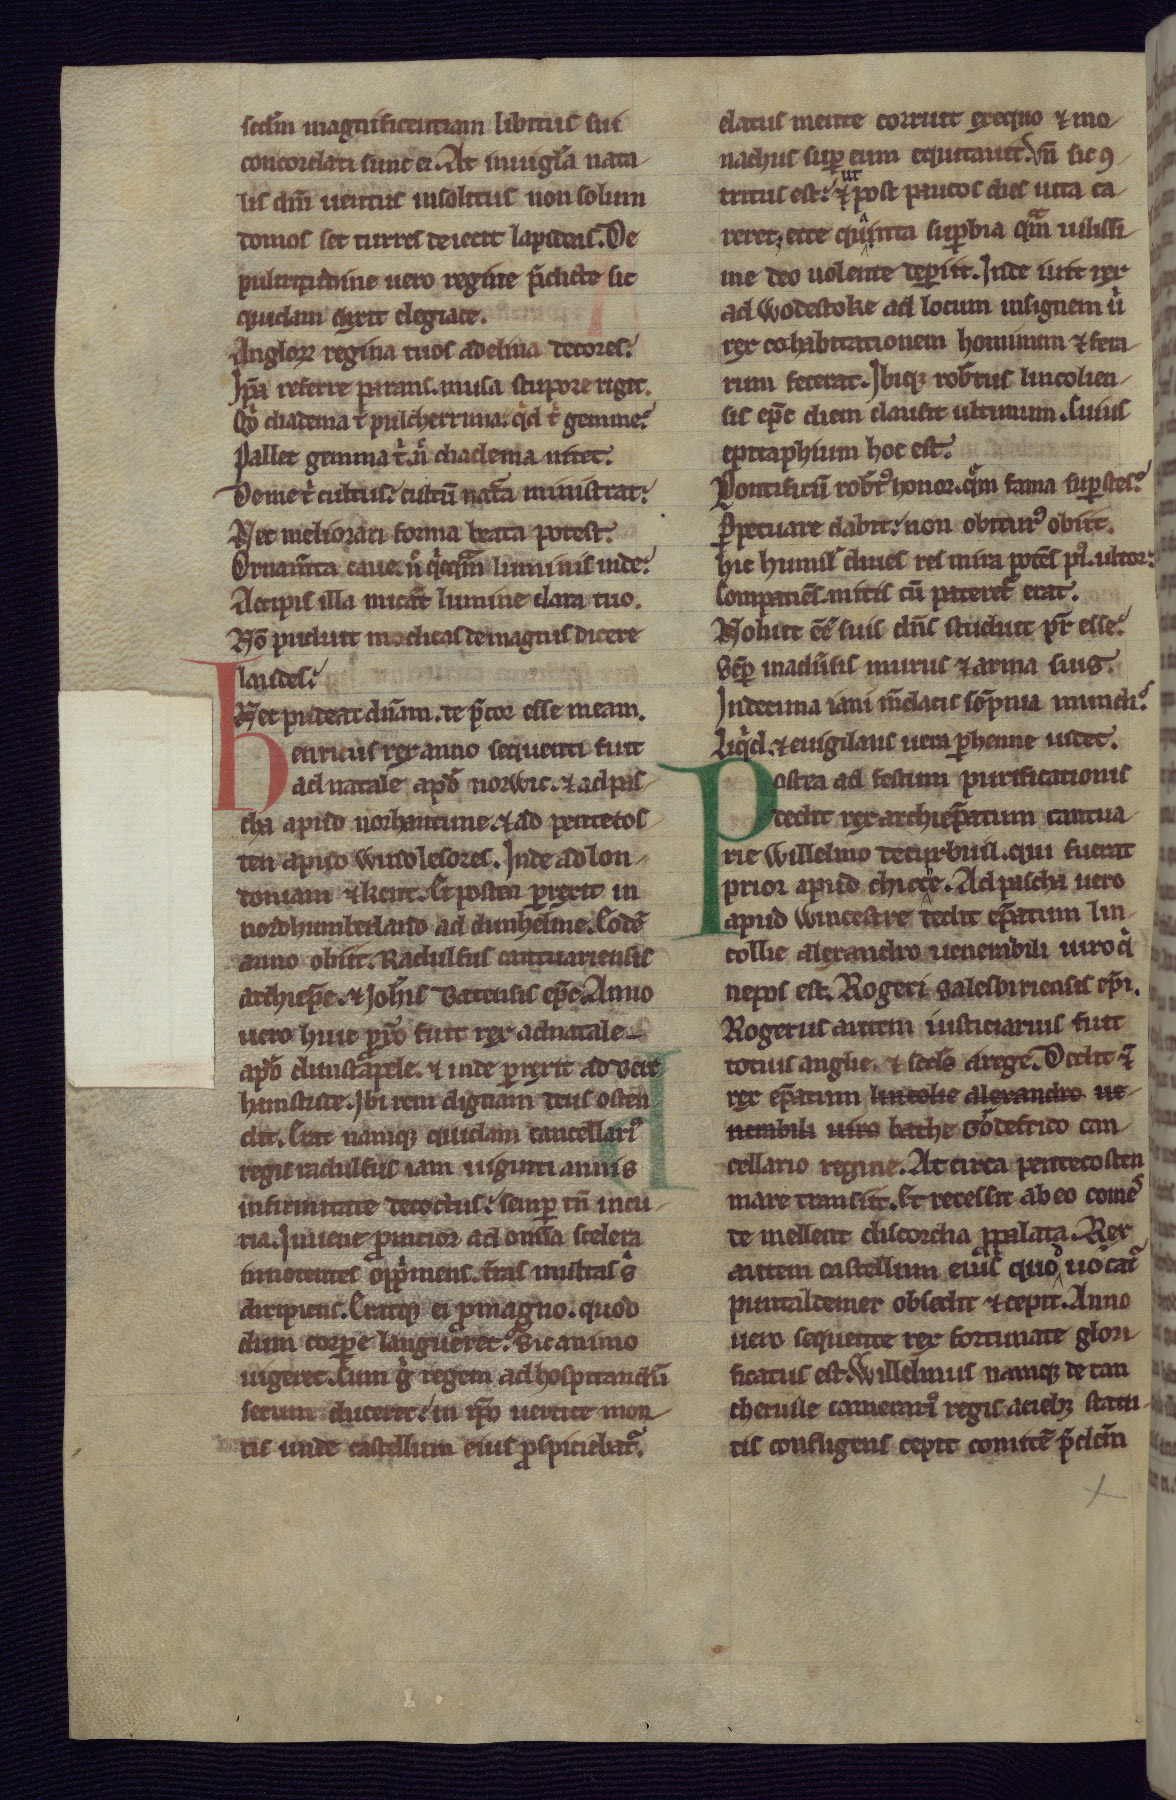 sectm magnificentiam libitus sui
concordati sunt ei. At in uigl̃a nata-
lis dñi uentus insolitus non solum
domos set turres deiecit lapideas. De
pulcritudine uero regine p̃dicte sic
quidam dixit elegiace.
Anglorꝝ regina tuos adelina decores:
Ip̃a referre parans. musa stupore riget.
Qͥ diadema tͥ pulcherrima: qͥd tͥ gemme:
Pallet gemma tͥ. nͨ diadema nitet.
Deme tͥ cultus: cultũ natͣa ministrat:
Nec meliorari forma beata potest.
Ornam̃ta caue. nͨ qͥcqͣm luminis inde:
Accipis illa micãt lumine clara tuo.
Nõ puduit modicas de magnis dicere
laudes:
Nec pudeat dñam. te p̃cor esse meam.
Henricus rex anno sequenti fuit
ad natale apđ norwic. & ad pas-
cha apud norhantune. & ad pentecos-
ten apud windlesores. Inde ad lon-
doniam & kent. Et postea prexit in
nordhumberland ad dunhelme. Eodẽ
anno obiit. Radulfus cantuariensis
archiep̃c. & Joh̃is batensis ep̃c. Anno
uero huic pͦxͦ fuit rex ad natale
apđ dunstaple. & inde prexit ad berc
hamstede. Ibi rem dignam deus osten
dit. Erat namqꝫ quidam cancellariꝰ
regis radulfus iam uiginti annis
infirmitate decoctus: semper tñ in cu-
ria. Iuuene promcior ad om̃ia scelera
innocentes opp̃mens. t̃ras multas sͥ
diripiens. Eratqꝫ ei pro magno. quod
dum corpore langueret: sic animo
uigeret. Cum gͦ regem ad hospitandũ
secum duceret: in ip̃o uertice mon-
tis unde castellum eius prospiciebatᷣ.
elatus mente corruit ex equo & mo-
nachus super eum equitauit. Vñ sic ꝯ-
tritus est: & ut post paucos dies uita ca-
reret. ecce quanta superbia qͣm uilissi-
me deo uolente deperiit. Inde iuit rex
ad Wodestoke ad locum insignem ũ
rex cohabitationem hominum & fera
rum fecerat. Ibiqꝫ rob̃tus lincolien-
sis ep̃c diem clausit ultimum. Cuius
epitaphium hoc est.
Pontificũ rob̃tꝰ honor. qͣm fama superstes:
Perpetuare dabit: non obiturꝰ obiit.
Hic humil̃ diues res mira potẽs pͥ. ultor:
Compatiẽs. mitis cũ pateretᷣ erat.
Noluit eẽ suis dñs studuit pr̃ esse:
Semper in adũsis murus & arma suis.
In decima iani m̃dacis sõpnia mundi:
Liqͥd. & euigilans uera perhenne uidet.
Postea ad festum purificationis
dedit rex archiep̃atum cantua-
rie Willelmo de curbuil. qui fuerat
prior apud chicce. Ad pascha uero
apud Wincestre dedit ep̃atum lin-
collie alexandro uenerabili uiro qͥ
nepos est. Rogeri salesbiriensis ep̃i.
Rogerus autem iusticiarius fuit
totius anglie. & secds a rege. Dedit &
rex ep̃atum lincolie alexandro ue-
nerabili uiro bathe Godefrido can-
cellario regine. At circa pentecosten
mare transiit. Et recessit ab eo comes
de mellent discordia propalata. Rex
autem castellum eius quod uocatᷣ
puntaldemer obsedit & cepit. Anno
uero sequente rex fortunate glori-
ficatus est. Willelmus namqꝫ de tan
cheruile camerariꝰ regis aciebꝫ statu-
tis confligens cepit comitẽ p̃dcm̃